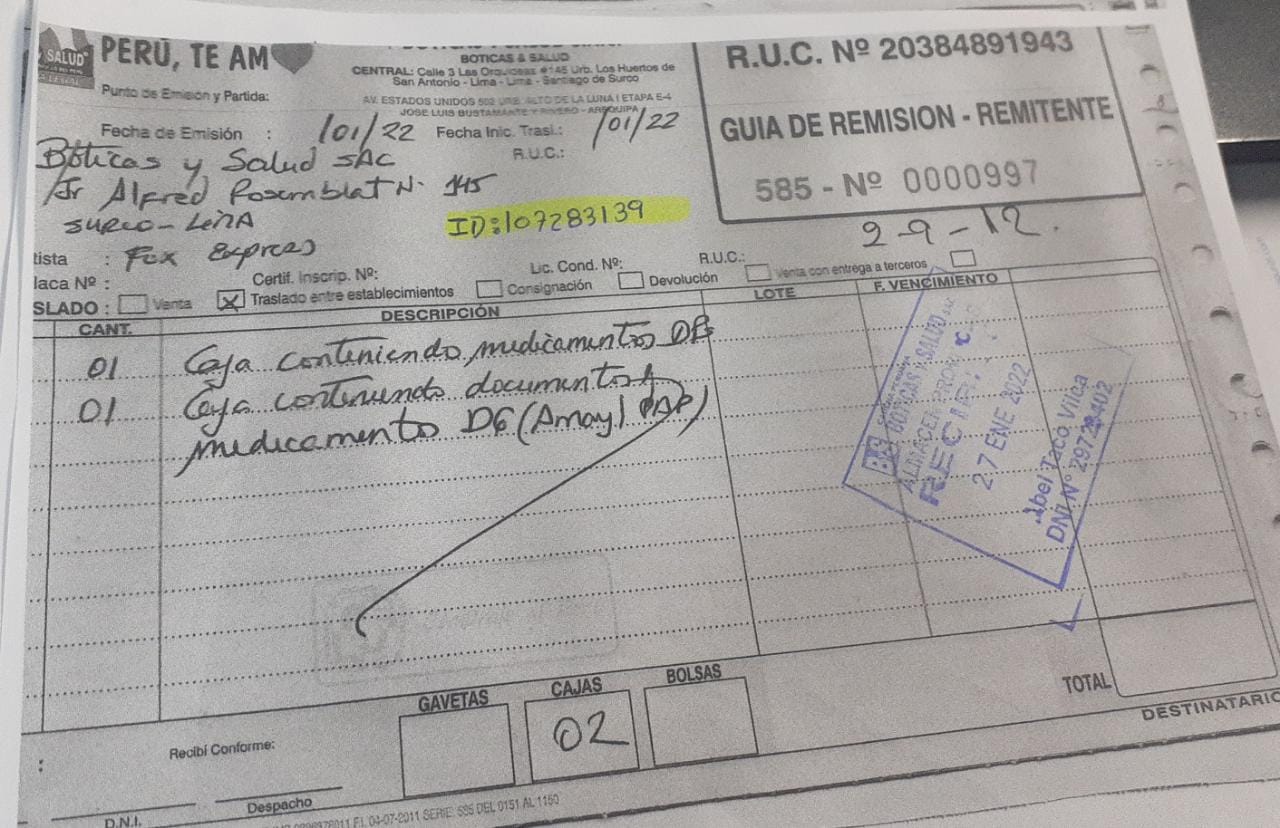 SALUD
PERÚ, TE AM
BOTICAS & SALUD
CENTRAL: Calle 3 Las Orquídeas #145 Urb. Los Huertos de
San Antonio - Lima - Lima - Santiago de Surco
Punto de Emisión y Partida:
AV. ESTADOS UNIDOS 502 URB. ALTO DE LA LUNA I ETAPA E-4
JOSE LUIS BUSTAMANTE Y RIVERO - AREQUIPA
R.U.C. Nº 20384891943
GUIA DE REMISION - REMITENTE
585 - Nº 0000997
Fecha de Emisión : /01/22 Fecha Inic. Trasl.: /01/22
Boticas y Salud SAC R.U.C.:
Jr Alfred Rosemblat N. 145
SURCO - LIMA
ID:107283139
29-12.
tista : Fox Express
laca Nº : Certif. Inscrip. Nº: Lic. Cond. Nº: R.U.C.:
SLADO : Venta X Traslado entre establecimientos Consignación Devolución Venta con entrega a terceros
CANT. DESCRIPCIÓN LOTE F. VENCIMIENTO
01 Caja conteniendo medicamentos
01 Caja conteniendo documentos
medicamento D6
BS BOTICAS Y SALUD
ALMACEN
27 ENE 2022
Abel Taco Vilca
DNI Nº
GAVETAS CAJAS BOLSAS
02
TOTAL
DESTINATARIO
Recibí Conforme:
:
D.N.I. Despacho
F.I. 04-07-2011 SERIE: 585 DEL 0151 AL 1150